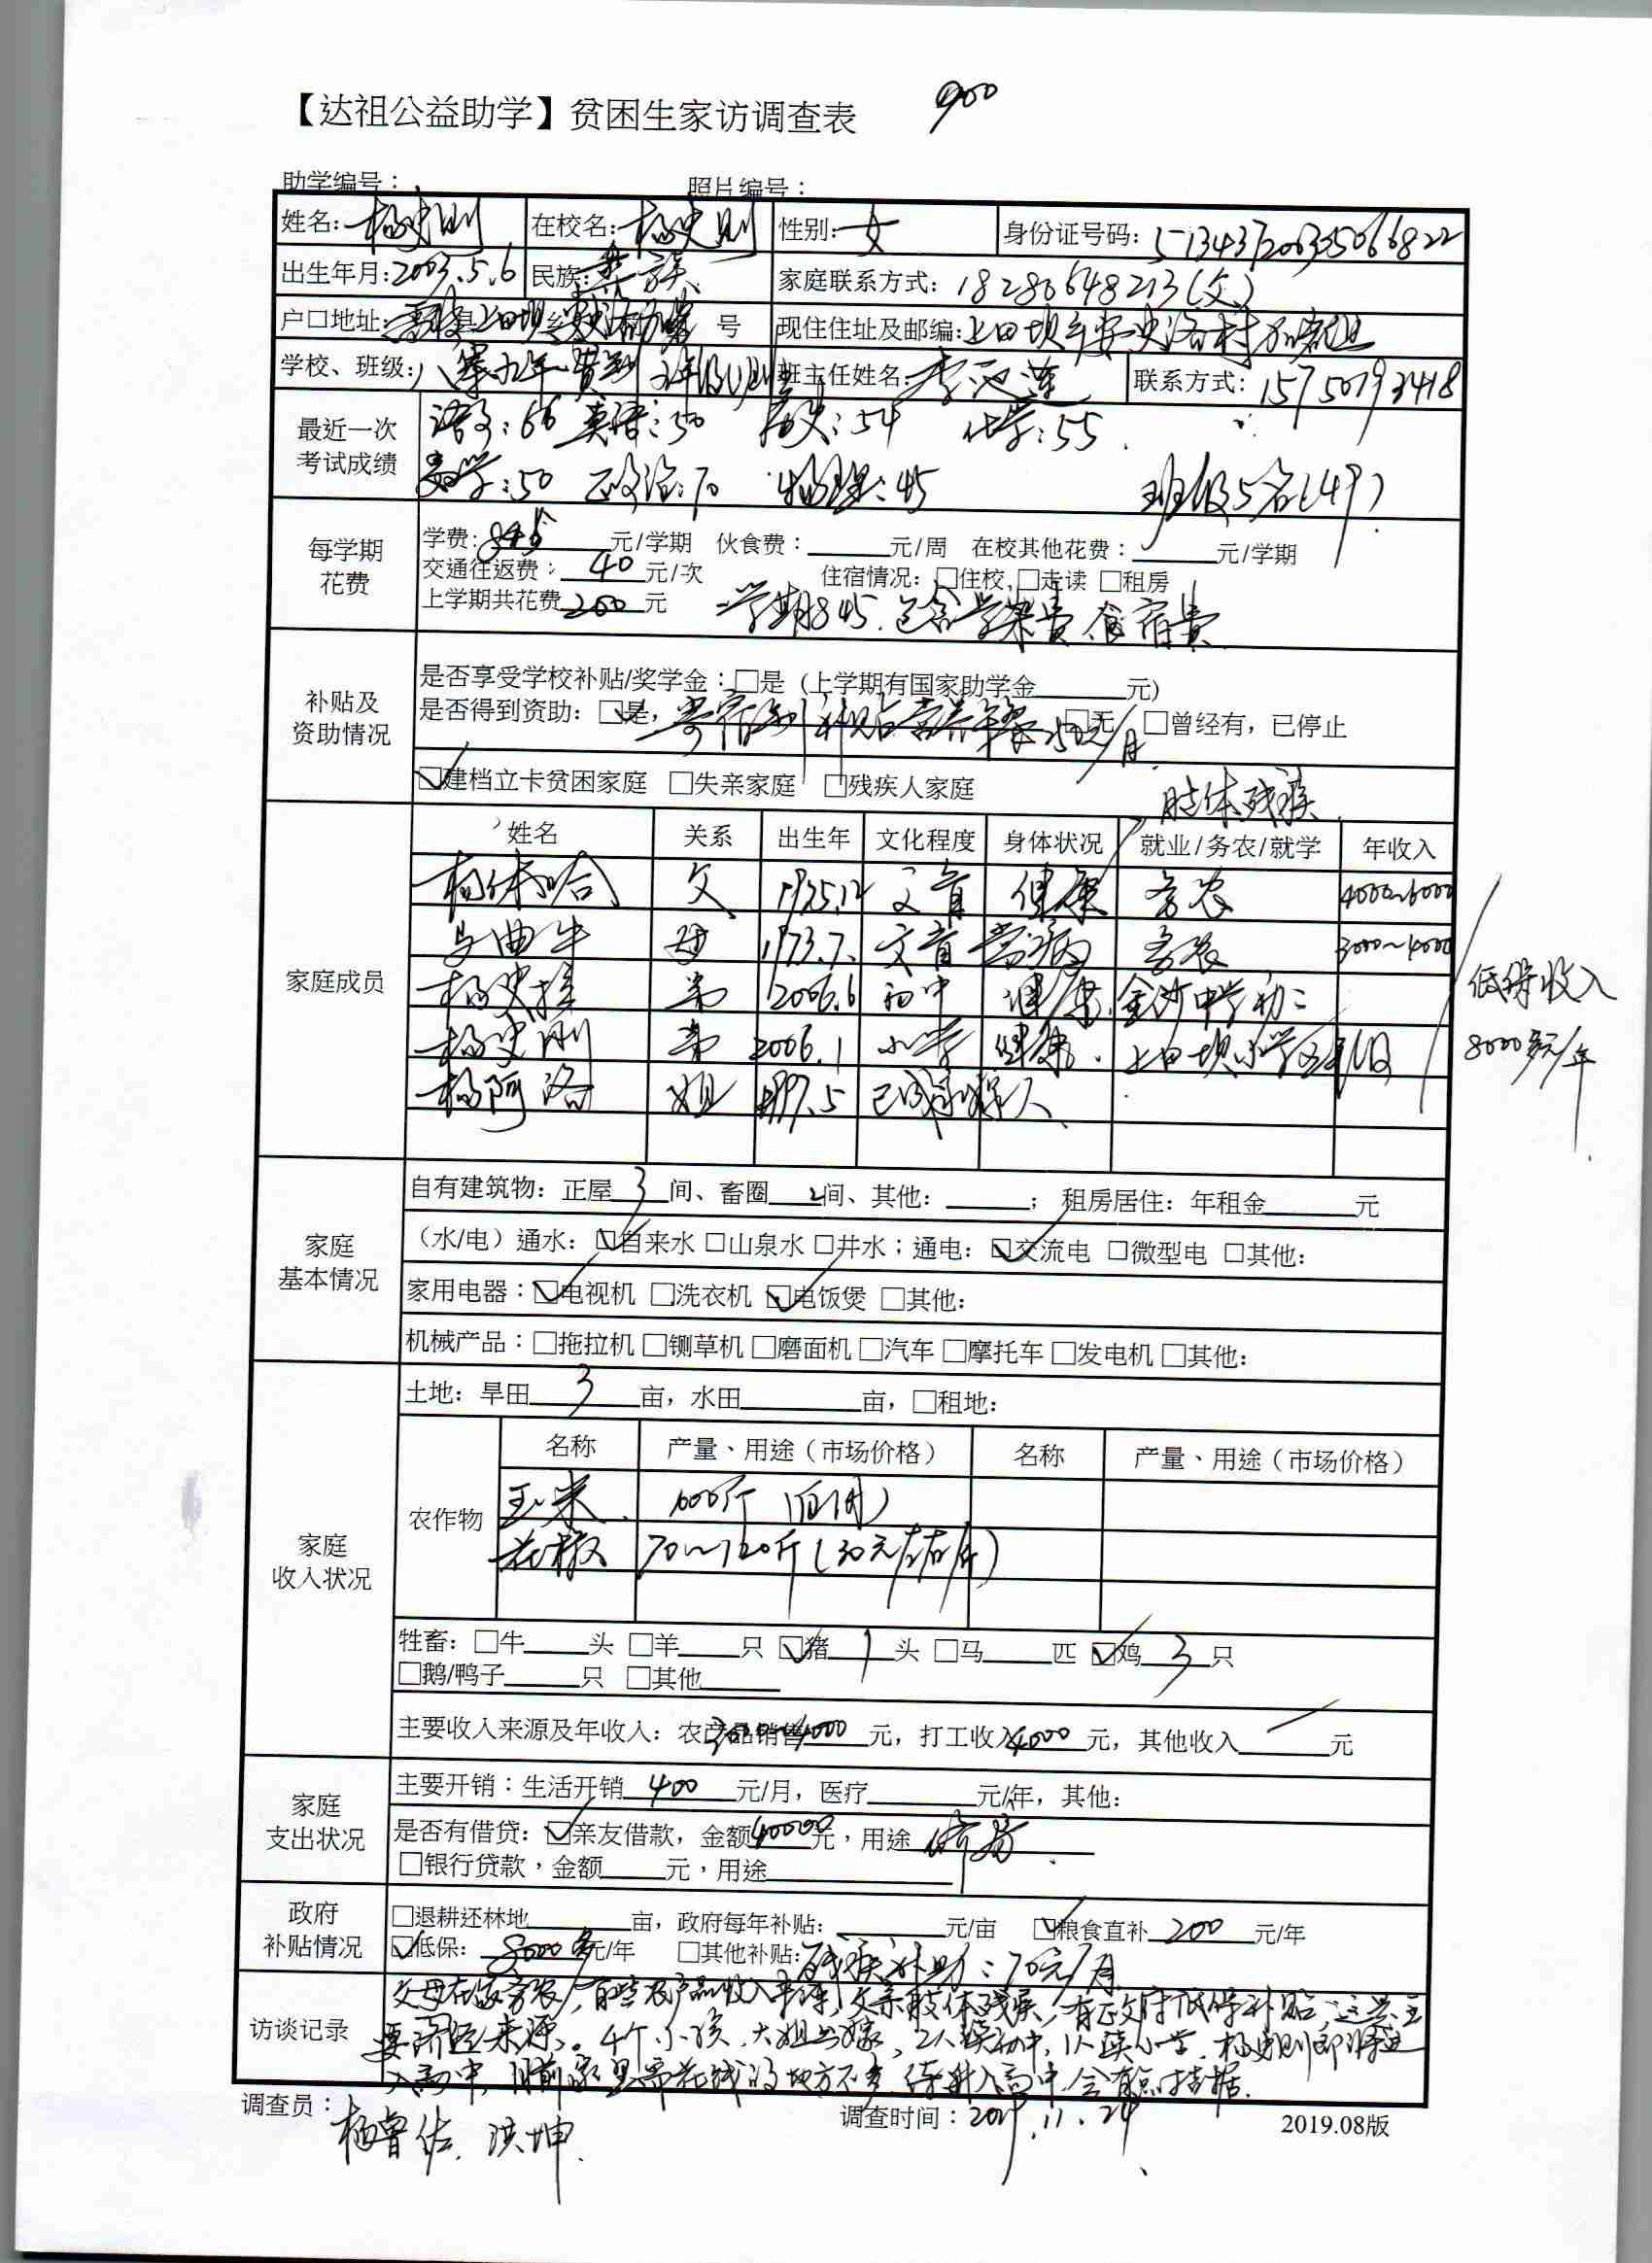 【达祖公益助学】贫困生家访调查表 900
助学编号： 照片编号：
姓名: 杨史则 在校名: 杨史则 性别: 女 身份证号码:
出生年月: 2003.5.6 民族: 彝族 家庭联系方式: 18280648213(父)
户口地址: 县 上田坝 乡 号 现住住址及邮编: 上田坝乡安史洛村
学校、班级: 班主任姓名: 李 莲 联系方式: 15750793418
最近一次考试成绩 语文:66 英语:50 历史:54 化学:55
数学:50 政治:70 物理:45 班级5名(49)
每学期花费 学费: 845 元/学期 伙食费： 元/周 在校其他花费： 元/学期
交通往返费： 40 元/次 住宿情况: □住校 □走读 □租房
上学期共花费 200 元 一学期845.包含学杂费、食宿费
补贴及资助情况 是否享受学校补贴/奖学金：□是 (上学期有国家助学金 元)
是否得到资助: ☑是, 寄宿制补贴营养午餐 元/月 □无 □曾经有，已停止
☑建档立卡贫困家庭 □失亲家庭 □残疾人家庭
肢体残疾
家庭成员 姓名 关系 出生年 文化程度 身体状况 就业/务农/就学 年收入
杨体哈 父 文盲 健康 务农 4000~6000
马曲牛 母 1973.7. 文盲 常病 务农 3000~4000
弟 2006.6 初中 健康 金沙中学初二
杨史刚 弟 2006.1 小学 健康 上田坝小学五年级
杨阿洛 姐 1997.5 已成家嫁人
低保收入
8000多元/年
家庭基本情况 自有建筑物: 正屋 3 间、畜圈 2 间、其他: ； 租房居住: 年租金 元
（水/电）通水: ☑自来水 □山泉水 □井水；通电: ☑交流电 □微型电 □其他:
家用电器：☑电视机 □洗衣机 ☑电饭煲 □其他:
机械产品：□拖拉机 □铡草机 □磨面机 □汽车 □摩托车 □发电机 □其他:
家庭收入状况 土地: 旱田 3 亩，水田 亩，□租地:
农作物 名称 产量、用途（市场价格） 名称 产量、用途（市场价格）
玉米 1000斤 (自用)
花椒 70~120斤(30元左右/斤)
牲畜: □牛 头 □羊 只 ☑猪 1 头 □马 匹 ☑鸡 3 只
□鹅/鸭子 只 □其他
主要收入来源及年收入: 农产品销售 3000~4000 元，打工收入 4000 元，其他收入 / 元
家庭支出状况 主要开销：生活开销 400 元/月，医疗 元/年，其他:
是否有借贷: ☑亲友借款，金额 40000 元，用途
□银行贷款，金额 元，用途
政府补贴情况 □退耕还林地 亩，政府每年补贴: 元/亩 ☑粮食直补 200 元/年
☑低保: 8000多 元/年 □其他补贴: 残疾补助：70元/月
访谈记录 父母在家务农，有些农产品收入来源，父亲肢体残疾，有政府低保补贴，这是主
要济经来源。4个小孩，大姐出嫁，2人读初中，1人读小学，杨史则即将进
入高中，目前家里需花钱的地方不多，待升入高中，会有点拮据.
调查员： 杨鲁佐. 洪坤. 调查时间：2019.11.24 2019.08版